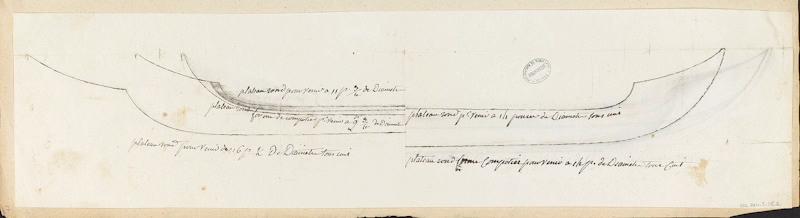 plateau rond pour venir a 11 p. ½ de Diametre
plateau rond
forme de compotier p. venir a 9 de Diametre
plateau rond pour venir de 16 p. ½ De Diametre tous cuit
plateau rond p. venir a 14 pouces de Diametre tous cuit
plateau rond forme Compotier pour venir a 14 p. de Diametre tous Cuit